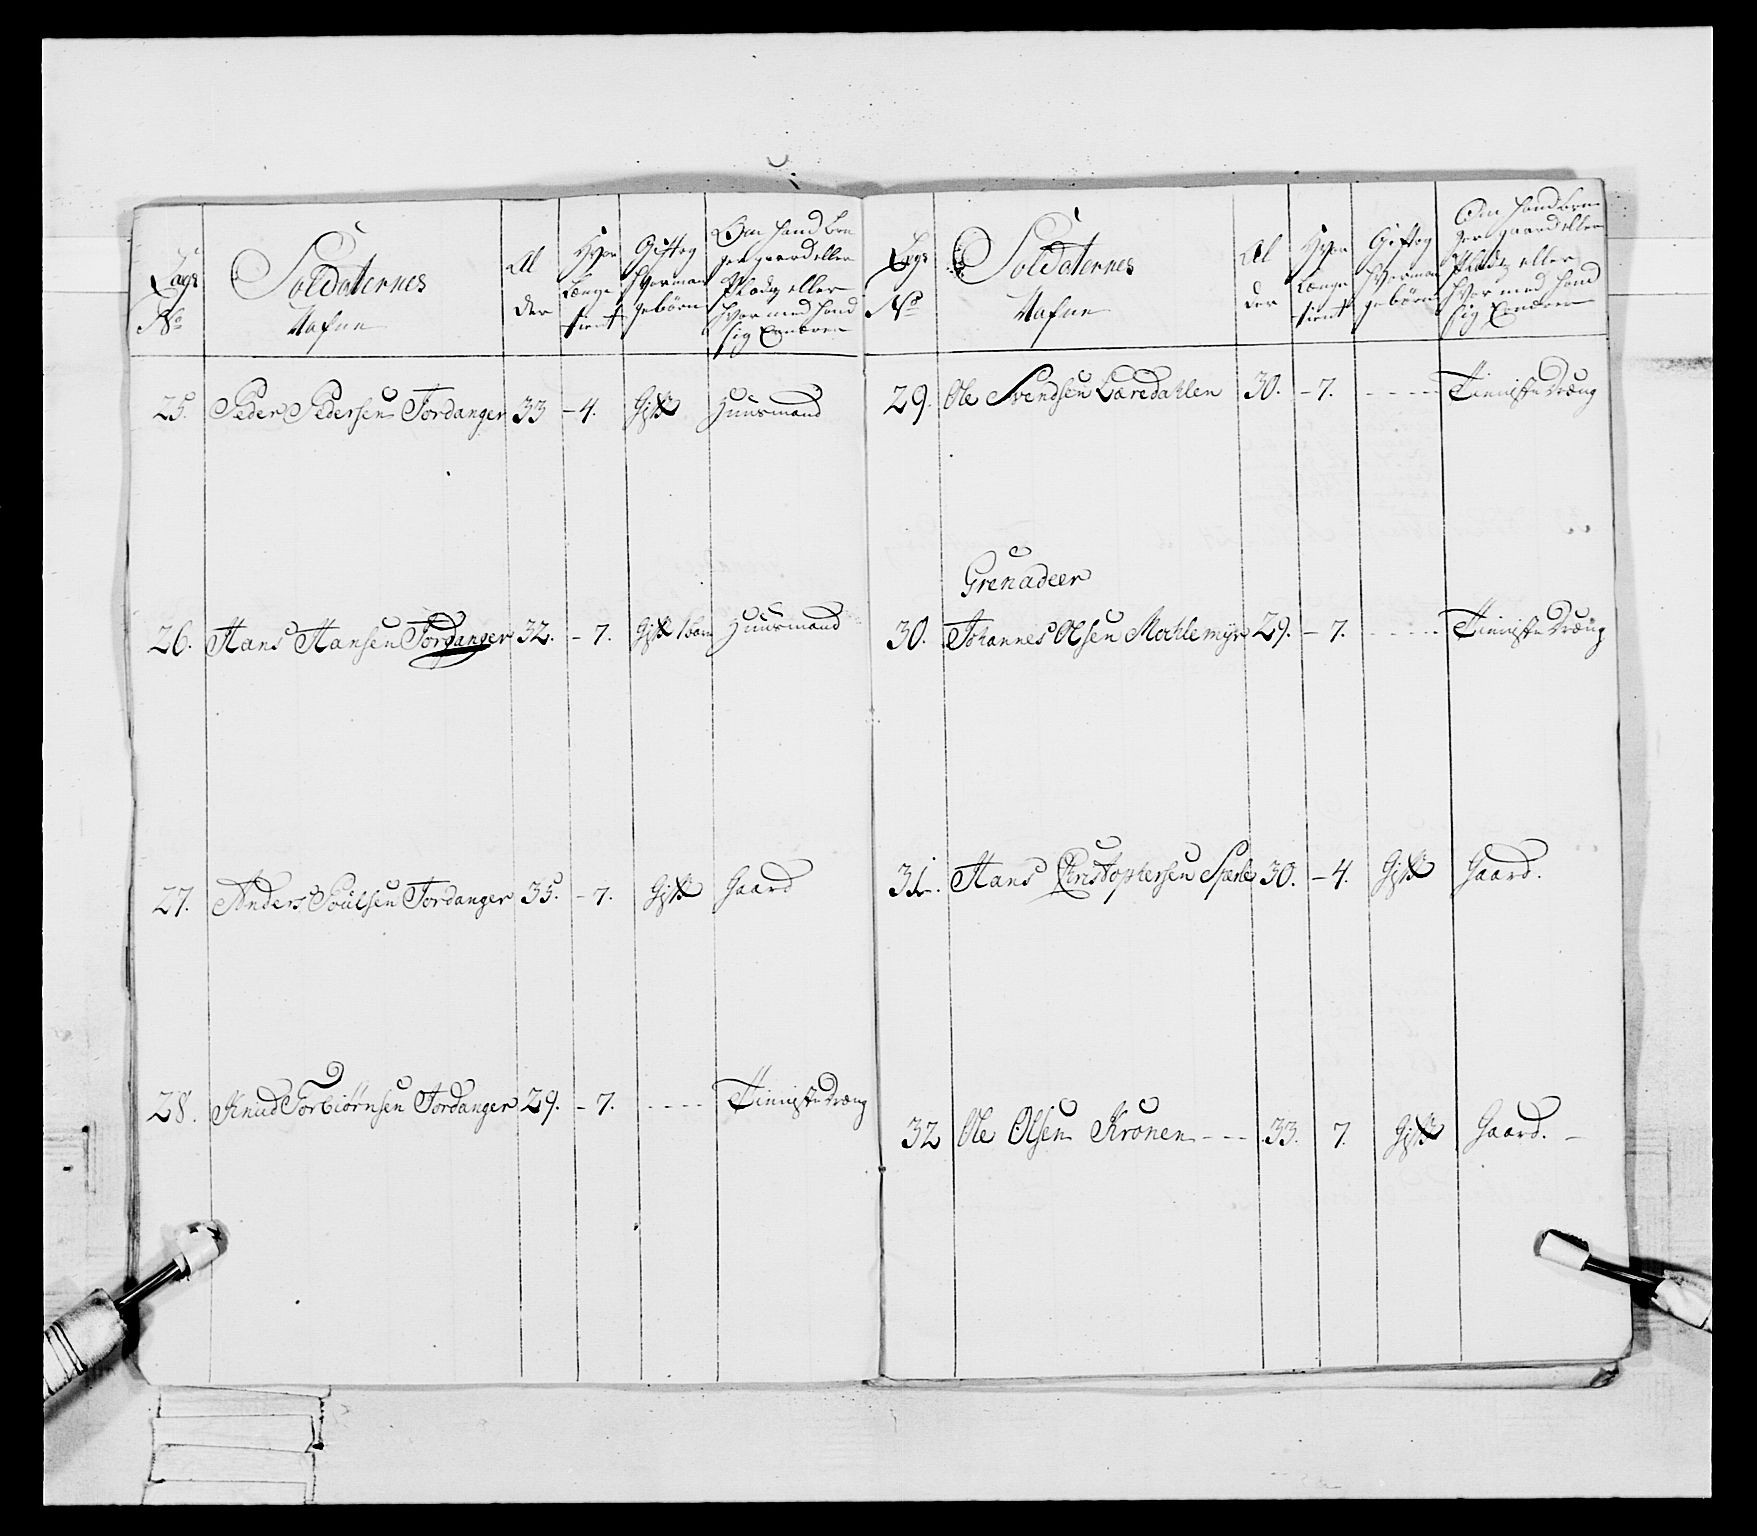 Lægs No
Soldaternes Nafne
Al der
Hvor Længe tient
Gift og Hvormange børn
Om hand bru ger gaard eller Pladtz eller Hvormed hand sig Ernærer
25. Peder Pedersen Jordanger 33 – 4. Gift Huusmand
26. Hans Hansen Jordanger 32. – 7. Gift 1 barn Huusmand
27. Anders Poulsen Jordanger 35. – 7. Gift Gaard
28. Knud Torbiørnsen Jordanger 29. – 7. – – – – Tieniste Dræng
Lægs No
Soldaternes Nafne
Al der
Hvor Længe tient
Gift og Hvorman ge børn
Om hand bru ger gaard eller Pladtz eller Hvormed hand sig Ernærer
29. Ole Svendsen Læredahlen 30. – 7. – – – – Tieniste Dræng
Grenadeer
30. Johannes Olsen Mochlemyr 29. – 7. – – – – Tieniste Dræng
31. Hans Christophersen Sperle 30. – 4. Gift Gaard.
32 Ole Olsen Kronen – – – 33. 7. Gift Gaard. –